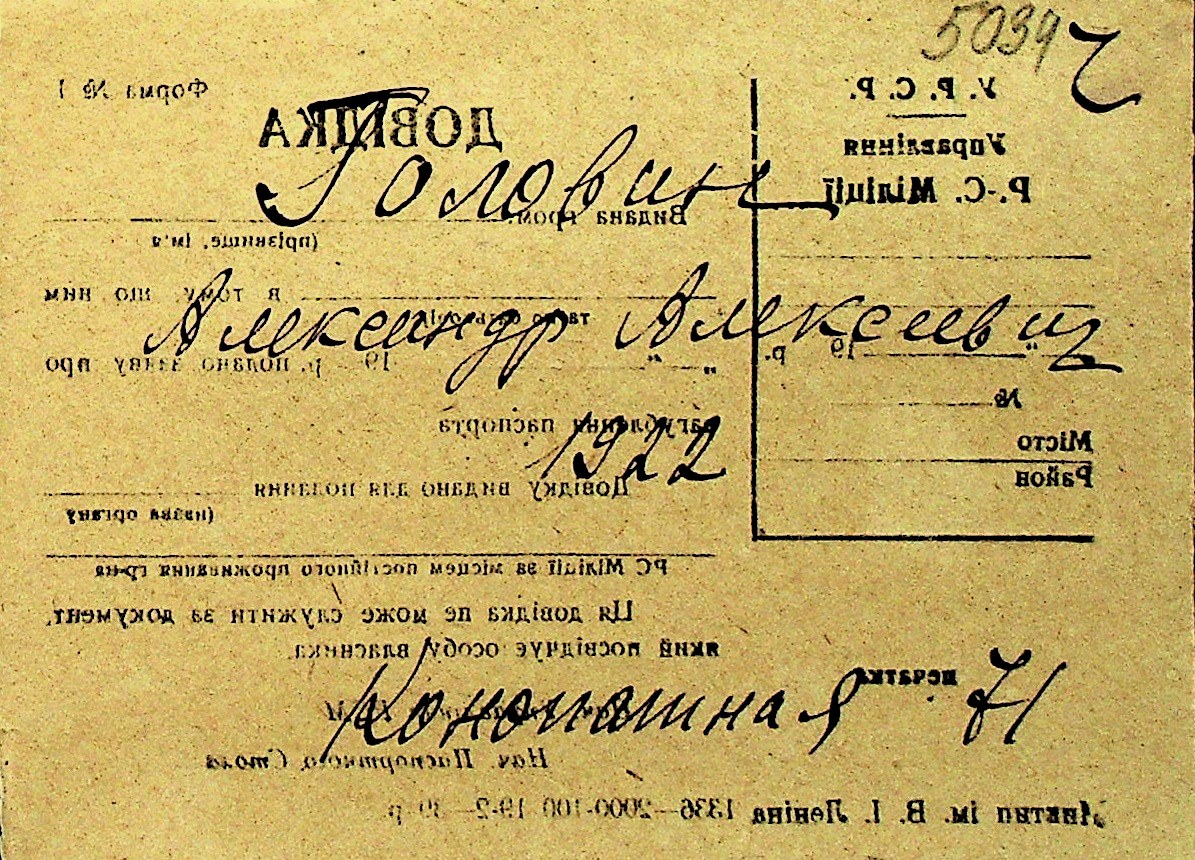 5034
У. Р. С. Р.
Управління
Р.-С. Міліції
„ “ 19 р.
№
Місто
Район
Форма № 1
ДОВІДКА
Головин
Видана гром.
(прізвище, ім'я
та по батькові)
в тому, що ним
Александр Алексеевич
„ “ 19 р. подано заяву про
загублення паспорта
1922
Довідку видано для подання
(назва органу
РС Міліції за місцем постійного проживання гр-на
Ця довідка не може служити за документ,
який посвідчує особу власника.
печатка
71
Нач. Паспортного Стола
ім. В. І. Леніна 1336—2000-100 19-2—39 р.